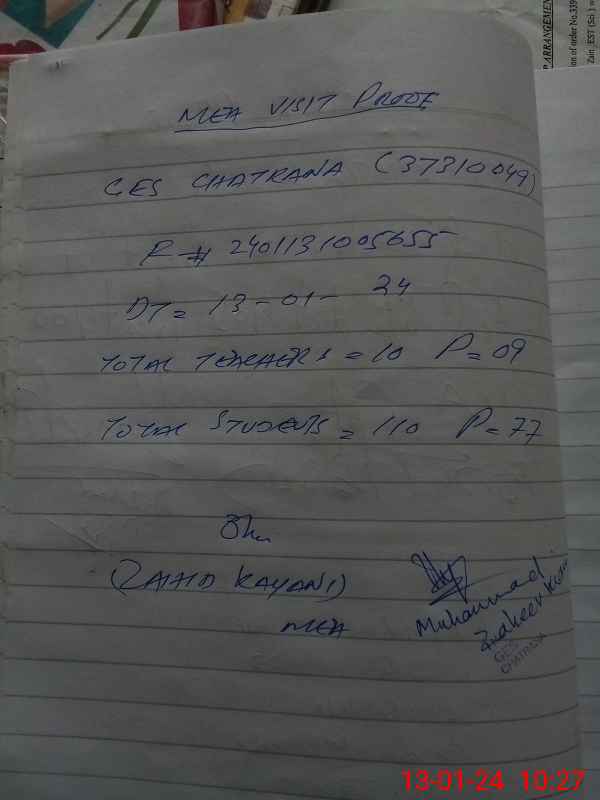 ARRANGEMENT
on of order No.339
Zain EST (Sci.)
MEA VISIT PROOF
GES CHATRANA (37310049)
R # 2401131005655
DT = 13-01-24
TOTAL TEACHERS = 10 P = 09
TOTAL STUDENTS = 110 P = 77
(ZAHID KAYANI)
MEA
Muhammad
GES
13-01-24 10:27